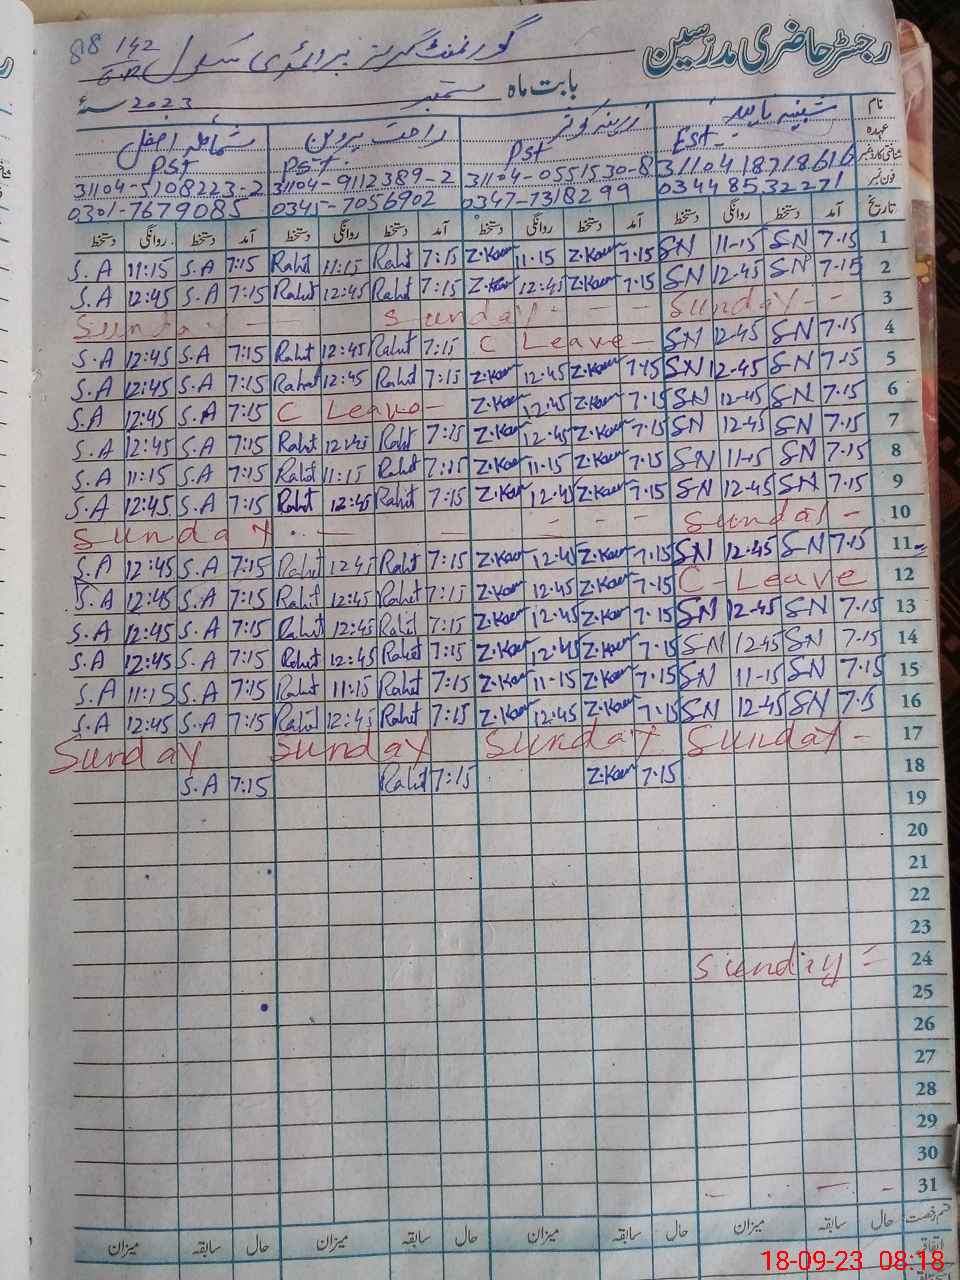 رجسٹر حاضری مدرسین
گورنمنٹ گرلز پرائمری سکول 142
بابت ماہ ستمبر 2023
نام شبینہ زرینہ کوثر راحت پروین شمائلہ افضل
عہدہ Est PST PST PST
شناختی کارڈ نمبر 31104-0551530-8 31104-9112389-2 31104-5108223-2
فون نمبر 03448532271 0347-7318299 0345-7056902 0301-7679085
تاریخ آمد دستخط روانگی دستخط آمد دستخط روانگی دستخط آمد دستخط روانگی دستخط آمد دستخط روانگی دستخط
S.A 11:15 S.A 7:15 Rahit 11:15 Rahit 7:15 Z.Kau 11.15 Z.Kau 7.15 SN 11-15 SN 7.15 1
S.A 12:45 S.A 7:15 Rahit 12:45 Rahit 7:15 Z.Kau 12:45 Z.Kau 7.15 SN 12-45 SN 7.15 2
Sunday - - Sunday - - - Sunday - - 3
S.A 12:45 S.A 7:15 Rahit 12:45 Rahit 7:15 C Leave - SN 12-45 SN 7.15 4
S.A 12:45 S.A 7:15 Rahat 12:45 Rahit 7:15 Z.Kau 12.45 Z.Kau 7.15 SN 12-45 SN 7.15 5
S.A 12:45 S.A 7:15 C Leave - Z.Kau 12:45 Z.Kau 7.15 SN 12-45 SN 7.15 6
S.A 12:45 S.A 7:15 Rahit 12:45 Rahit 7:15 Z.Kau 12.45 Z.Kau 7.15 SN 12-45 SN 7.15 7
S.A 11:15 S.A 7:15 Rahit 11:15 Rahit 7:15 Z.Kau 11-15 Z.Kau 7.15 SN 11-15 SN 7.15 8
S.A 12:45 S.A 7:15 Rahit 12:45 Rahit 7:15 Z.Kau 12.45 Z.Kau 7.15 SN 12-45 SN 7.15 9
Sunday - - - - - Sunday - 10
S.A 12:45 S.A 7:15 Rahit 12:45 Rahit 7:15 Z.Kau 12.45 Z.Kau 7.15 SN 12-45 SN 7.15 11
S.A 12:45 S.A 7:15 Rahit 12:45 Rahit 7:15 Z.Kau 12.45 Z.Kau 7.15 C-Leave 12
S.A 12:45 S.A 7:15 Rahit 12:45 Rahit 7:15 Z.Kau 12.45 Z.Kau 7.15 SN 12-45 SN 7.15 13
S.A 12:45 S.A 7:15 Rahit 12:45 Rahit 7:15 Z.Kau 12.45 Z.Kau 7.15 SN 12-45 SN 7.15 14
S.A 11:15 S.A 7:15 Rahit 11:15 Rahit 7:15 Z.Kau 11-15 Z.Kau 7.15 SN 11-15 SN 7.15 15
S.A 12:45 S.A 7:15 Rahit 12:45 Rahit 7:15 Z.Kau 12.45 Z.Kau 7.15 SN 12-45 SN 7.15 16
Sunday Sunday Sunday Sunday - 17
S.A 7:15 Rahit 7:15 Z.Kau 7.15 18
19
20
21
22
23
Sunday = 24
25
26
27
28
29
30
31
قسم رخصت حال سابقہ میزان حال سابقہ میزان حال سابقہ میزان حال سابقہ میزان
اتفاقی
18-09-23 08:18